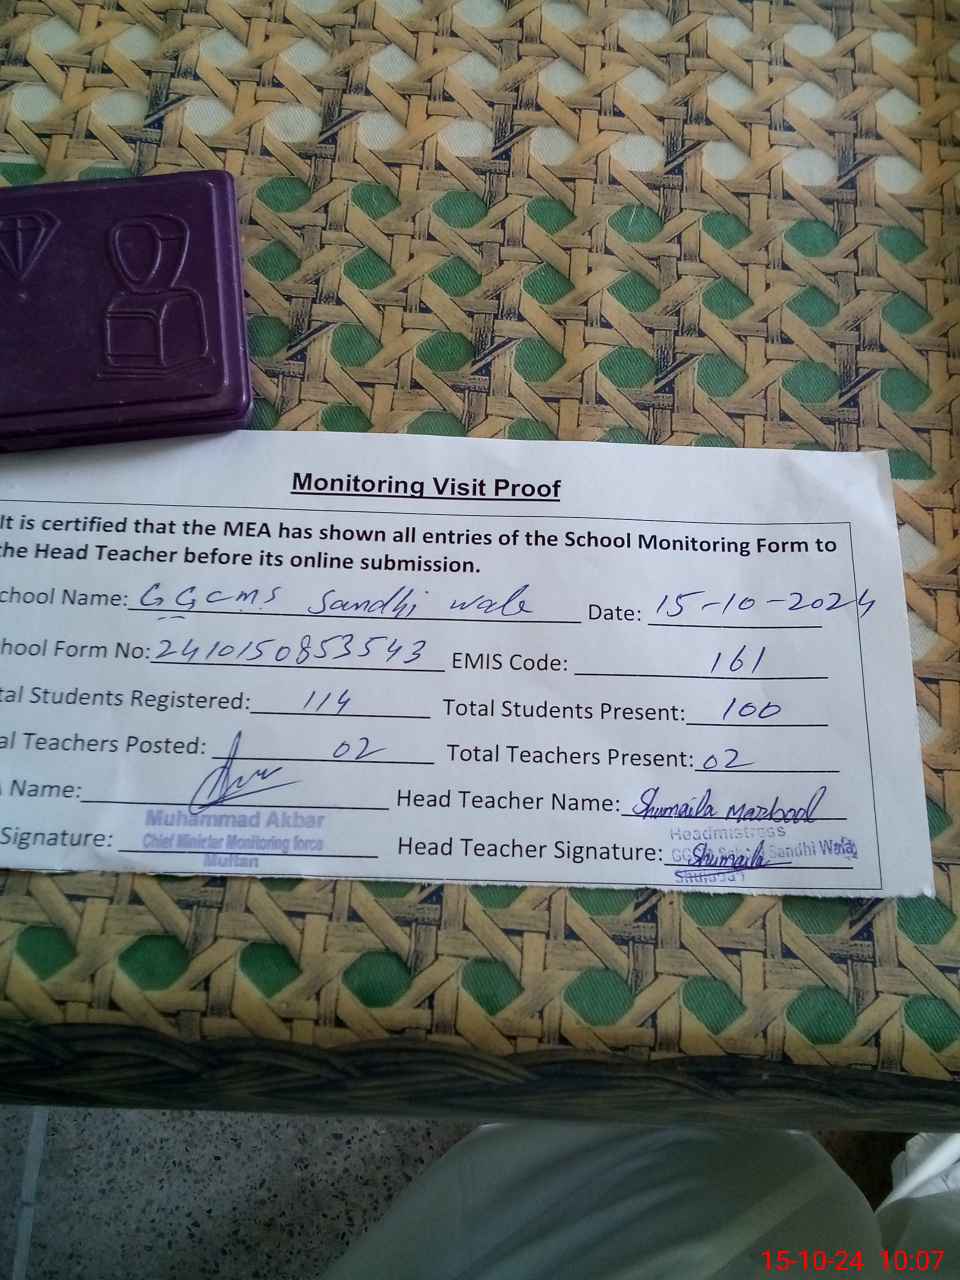 Monitoring Visit Proof
It is certified that the MEA has shown all entries of the School Monitoring Form to
the Head Teacher before its online submission.
chool Name: GGCMS Sandhi wala Date: 15-10-2024
hool Form No: 2410150853543 EMIS Code: 161
tal Students Registered: 114 Total Students Present: 100
al Teachers Posted: 02 Total Teachers Present: 02
Name: Head Teacher Name: Shumaila Maqbool
Muhammad Akbar Headmistress
Signature: Chief Minister Monitoring force Head Teacher Signature: Shumaila Sandhi Wala
Multan
15-10-24 10:07